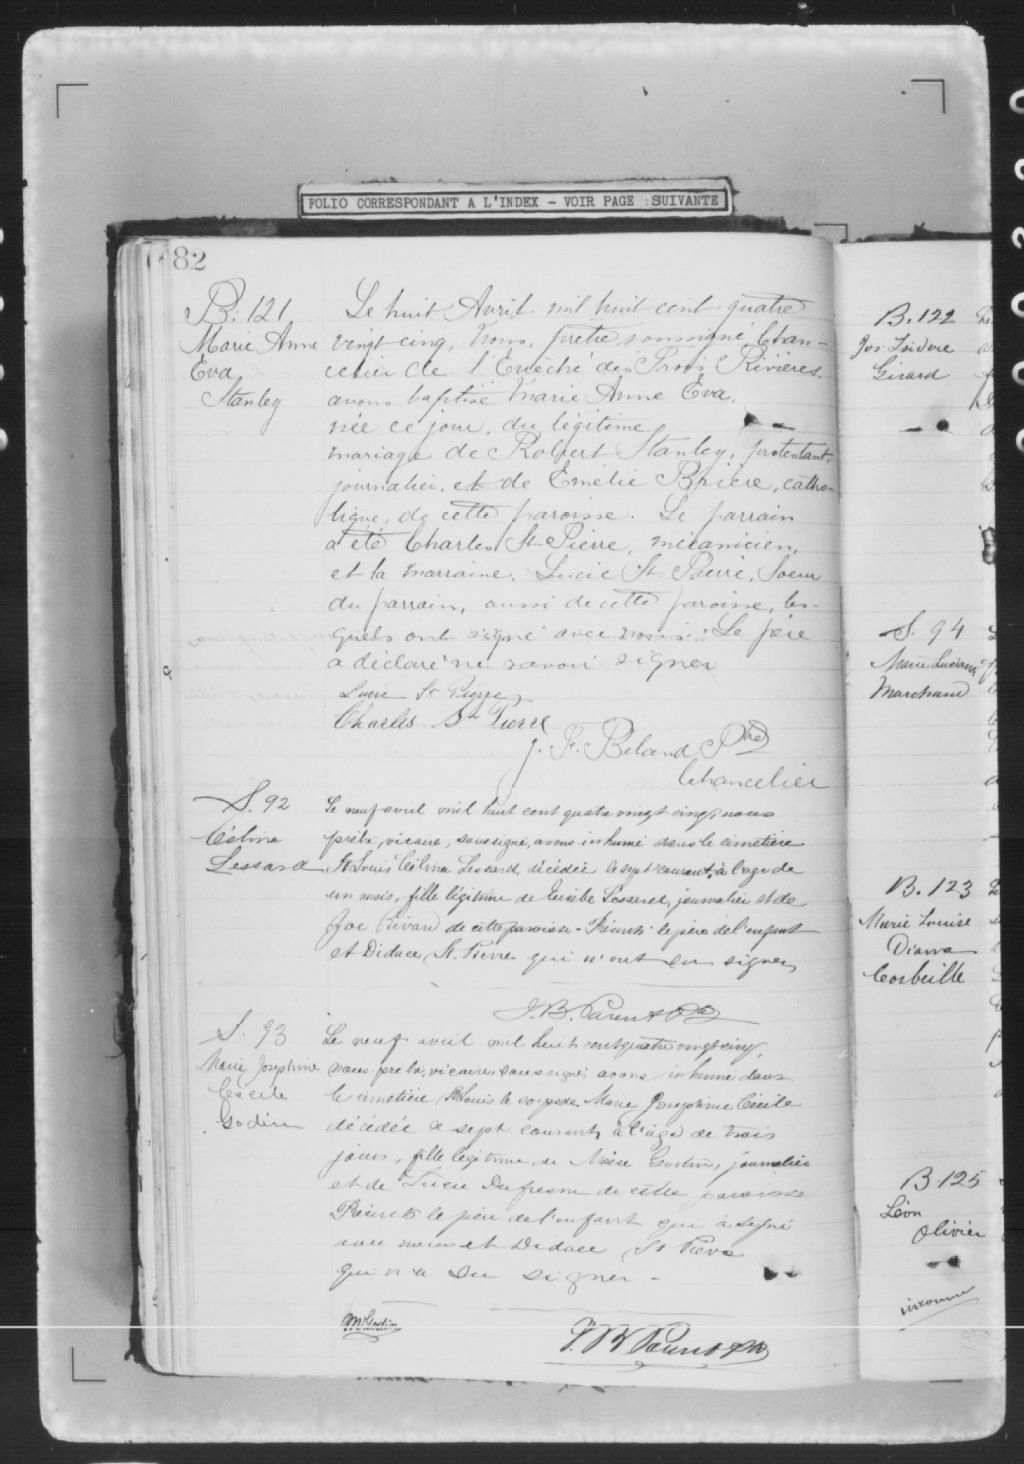 FOLIO CORRESPONDANT A L'INDEX - VOIR PAGE SUIVANTE
82
B. 121
Marie Anne
Eva
Stanley
Le huit Avril mil huit cent quatre
vingt cinq, Nous, prêtre soussigné Chan-
celier de l'Evêché des Trois Rivières,
avons baptisé Marie Anne Eva,
née ce jour, du légitime
mariage de Robert Stanley, protestant,
journalier, et de Emélie Brière, catho-
lique, de cette paroisse. Le parrain
a été Charles St Pierre, mécanicien,
et la marraine, Lucie St Pierre, Soeur
du parrain, aussi de cette paroisse, les-
quels ont signé avec nous. Le père
a déclaré ne savoir signer
Lucie St Pierre
Charles St Pierre
J. F. Béland Ptre
Chancelier
S. 92
Célina
Lessard
Le neuf avril mil huit cent quatre vingt cinq, nous
prêtre, vicaire, soussigné, avons inhumé dans le cimetière
St Louis Célina Lessard, décédée le sept courant, à l'age de
un mois, fille légitime de Eusèbe Lessard, journalier et de
Zoe Rivard de cette paroisse - Présents le père de l'enfant
et Didace St. Pierre qui n'ont su signer
J. B. Parent Ptre
S. 93
Marie Josephine
Cécile
Godin
Le neuf avril mil huit cent quatre vingt cinq,
nous prêtre, vicaire, soussigné, avons inhumé dans
le cimetière St Louis le corps de Marie Josephine Cécile
décédée le sept courant, à l'age de trois
jours, fille légitime de Moïse Godin, journalier
et de Lucie Dufresne de cette paroisse
Présents le père de l'enfant qui a signé
avec nous et Didace St Pierre
qui n'a su signer -
M Godin
J. B. Parent Ptre
B. 122
Jos Isidore
Girard
S. 94
Marie Luciana
Marchand
B. 123
Marie Louise
Diana
Corbeille
B. 125
Léon
Olivier
inconnu